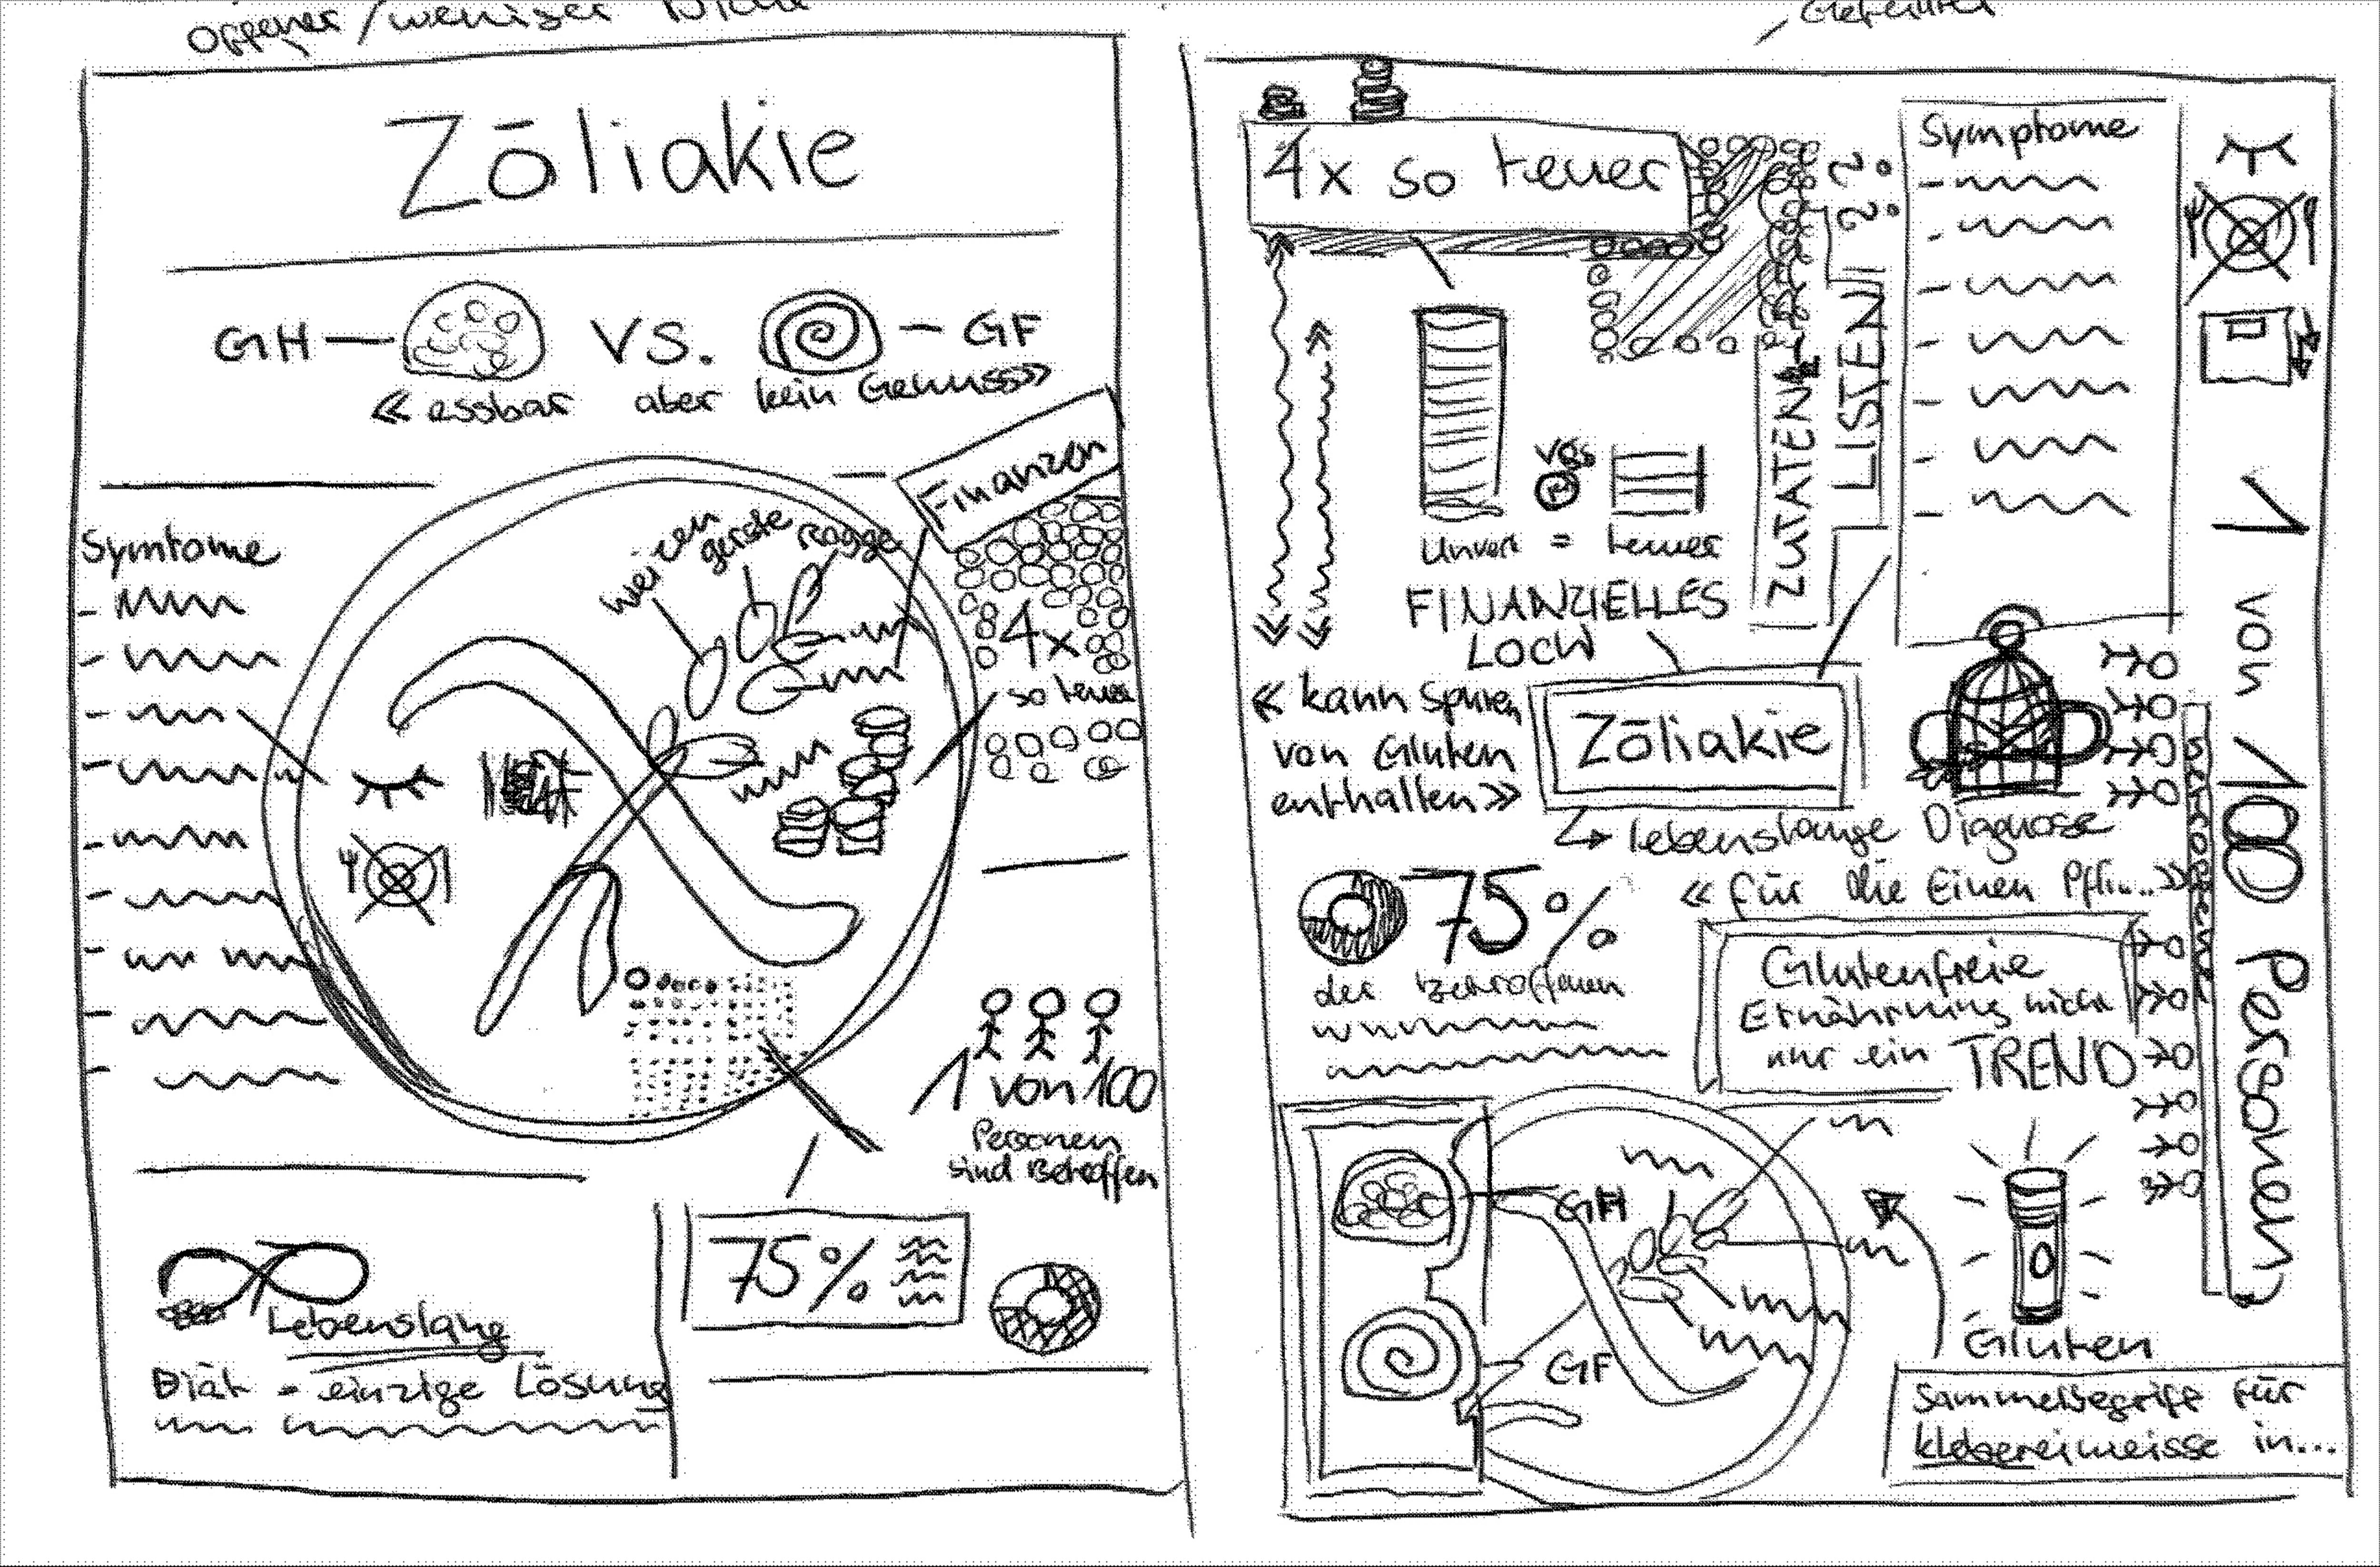 offener / weniger
Zōliakie
GH
VS.
GF
<< essbar aber kein Genuss >>
Finanzen
Symtome
Weizen
gerste
Rogge
4x
so teuer
1 von 100
Personen
sind Betroffen
75%
Lebenslang
Diät = einzige Lösung
4x so teuer
??
ZUTATEN
LISTEN
VS.
Unvert = teuer
FINANZIELLES
LOCH
<< kann Spuren
von Gluten
enthalten >>
Zōliakie
lebenslange Diagnose
<< für die Einen Pfli... >>
75%
der Betroffenen
Glutenfreie
Ernährung nicht
nur ein TREND
Symptome
1 von 100 Personen
GH
GF
Gluten
Sammelbegriff für
klebereiweisse in...